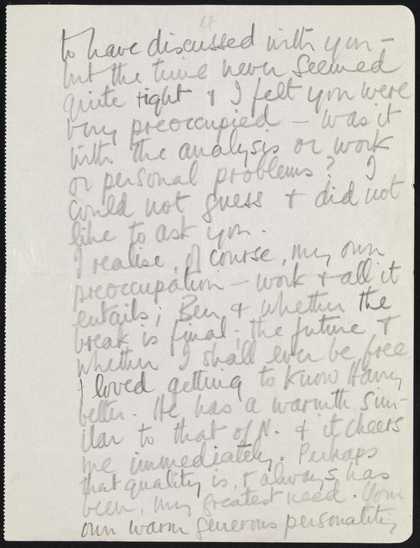 to have discussed with you –
but the time never seemed
quite right & I felt you were
very preoccupied – was it
with the analysis or work
or personal problems? I
could not guess & did not
like to ask you.
I realise, of course, my own
preoccupation – work & all it
entails; Ben, & whether the
break is final; the future &
whether I shall ever be free
I loved getting to know Harry
better. He has a warmth sim-
ilar to that of N. & it cheers
me immediately. Perhaps
that quality is, & always has
been, my greatest need. Your
own warm generous personality,